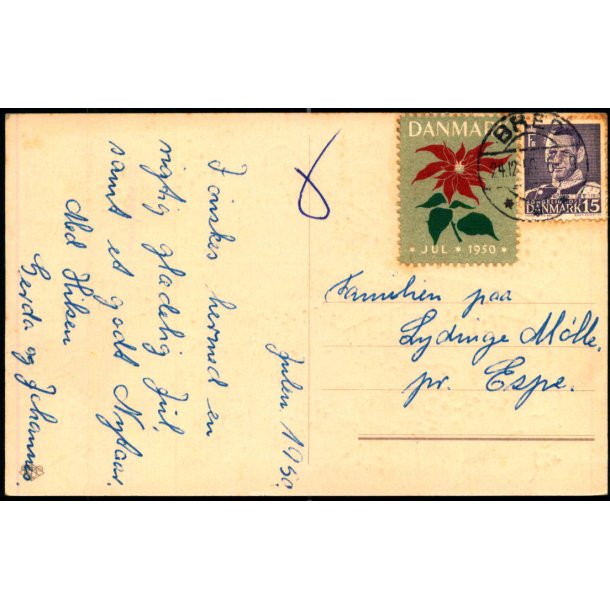 Julen. 1950.
I ønskes hermed en
rigtig glædelig Jul.
samt et godt Nytaar.
Med Hilsen
Gerda og Johannes.
DANMARK
JUL * 1950 *
24.12
DANMARK 15
Familien paa
Lydinge Mølle.
pr. Espe.